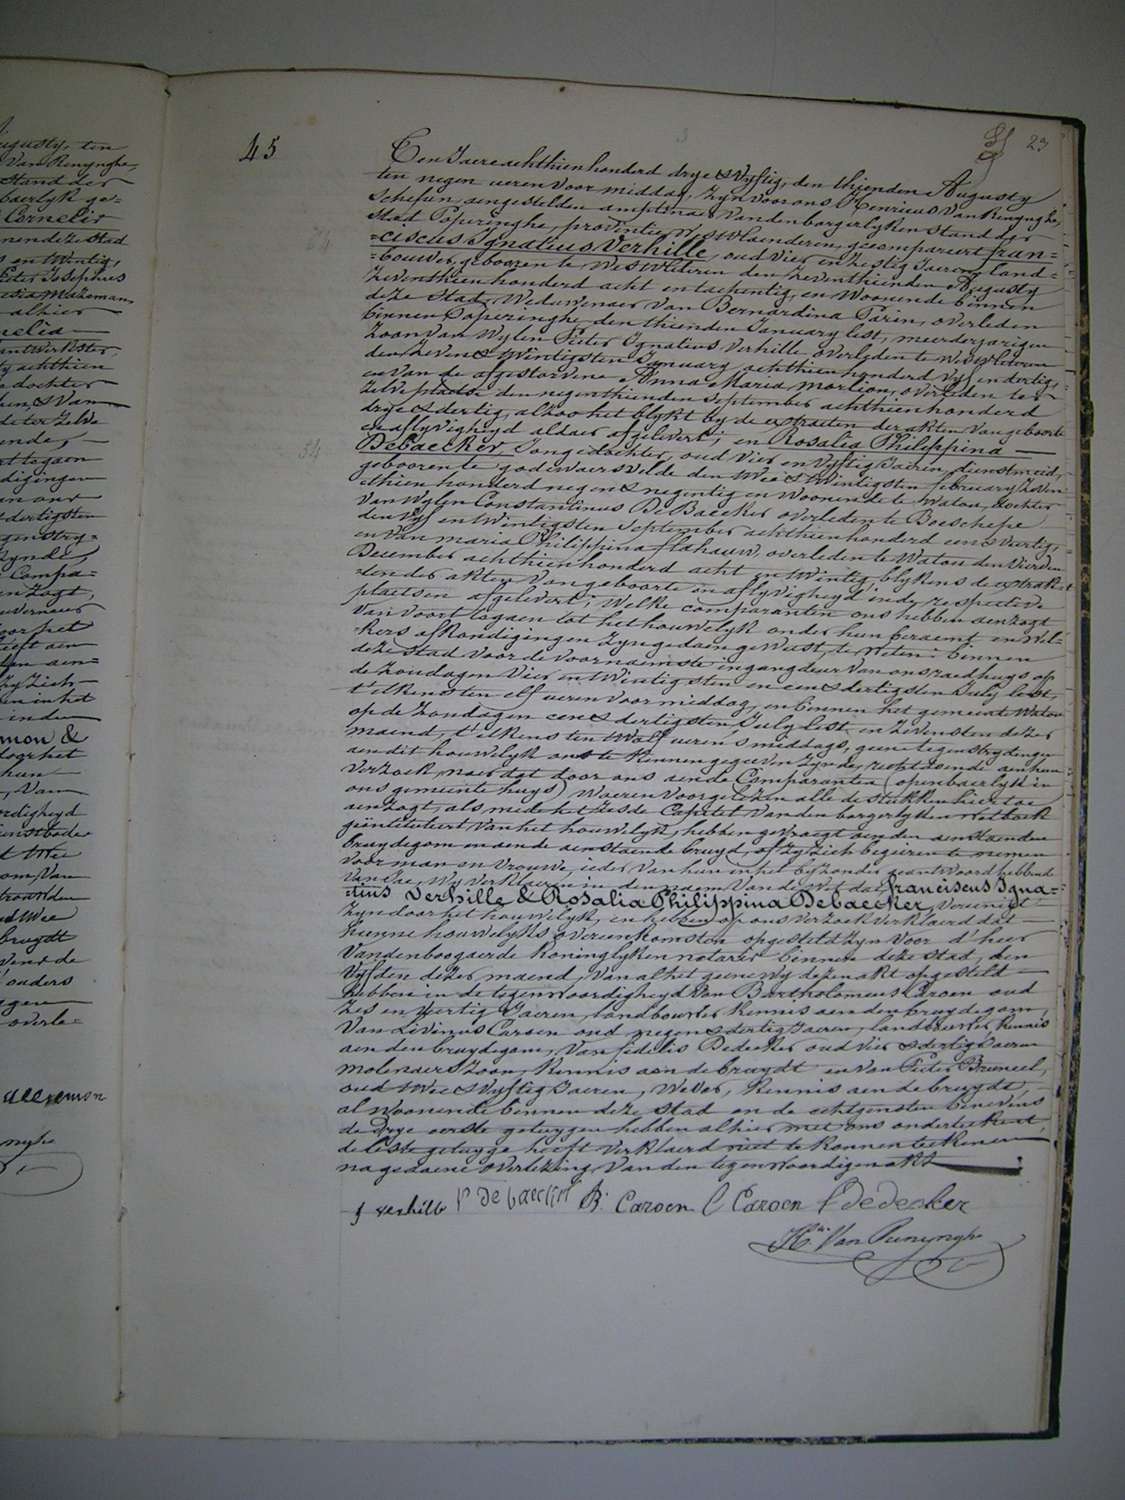 45
23
Ten Jaere achthien honderd drye & Vyftig, den thienden Augusty
ten negen ueren voor middag, Zyn voor ons Henricus Van Renynghe,
Schepen, aengestelden amptenaer Van den borgerlyken stand der
stad Poperinghe, provintie West Vlaenderen, gecompareert fran=
=ciscus Ignatius Verhille, oud Vier en Zestig Jaeren, land=
=bouwer, geboren te Westvleteren den Zeventhienden Augusty
Zeventhien honderd acht en tachentig, en Woonende binnen
deze Stad, Weduwenaer Van Bernardina Parin, overleden
binnen Poperinghe den thienden January lest, meerderjarigen
Zoon Van Wylen Pieter Ignatius Verhille overleden te Westvleteren
den Zeven & twintigsten January achthien honderd Vyf en dertig,
en Van de afgestorvene Anna Maria Morlion, overleden ter
Zelve plaetse den negenthienden September achthien honderd
drye & dertig, alzoo het blykt by de extraiten der akten Van geboorte
en aflyvigheyd aldaer afgelevert; en Rosalia Philippina
Debaecker, Jonge dochter, oud Vier en Vyftig Jaeren, dienstmeid,
geboren te godewaersvelde den twee & twintigsten february Zeven=
thien honderd negen & negentig en Woonende te Watou, dochter
Van Wylen Constantinus De Baecker overleden te Boeschepe
den Vyf en twintigsten September achthien honderd een & veertig,
en Van Maria Philippina flahauw, overleden te Watou den Vierden
December achthien honderd acht en twintig, blykens de extraken
der akten Van geboorte en aflyvigheyd in de respective
plaetsen afgelevert; Welke comparanten ons hebben aenzogt
Van voort tegaen tot het houwelyk onder hun beraemt en Wel=
=kers afkondigingen Zyn gedaen geweest, te Weten: binnen
deze Stad voor de voornaemste ingang deur Van ons raedhuys op
de Zondagen Vier en twintigsten en een & dertigsten July lest,
t'elkens ten elf ueren voor middag, en binnen het gemeente Watou
op de Zondagen een & dertigsten July lest en Zevensten dezer
maend, t'elkens ten twalf ueren 's middags, geene tegenstrydingen
aen dit houwelyk ons te Kennen gegeven Zynde, recht doende aen hun
Verzoek, naer dat door ons aen de Comparanten (openbaerlyk in
ons gemeente huys) Waeren voorgelezen alle de stukken hier toe
aenzogt, als mede het Zesde Capittel Van den borgerlyken Wetboek
geïntituleert Van het houwelyk, hebben gevraegt aen den aenstaenden
bruydegom en aen de aenstaende bruyd, of Zy Zich begeiren te nemen
voor man en Vrouwe, ieder Van hun in het byzonder geantwoord hebbende
Van Jae, Wy verklaeren in den naem Van de Wet dat franciscus Igna=
=tius Verhille & Rosalia Philippina Debaecker, Vereenigt
Zyn door het houwelyk, en hebben op ons verzoek verklaerd dat
hunne houwelyks overeenkomsten opgesteld Zyn voor d'heer
Vandenboogaerde Koninglyken notaris binnen deze Stad, den
Vyfden dezer maend, Van al het geene wy dezen akt opgesteld
hebben in de tegenwoordigheyd Van Bartholomeus Caroen oud
Zes en Veertig Jaeren, landbouwer, Kennis aen den bruydegom,
Van Livinus Caroen oud negen & dertig Jaeren, landbouwer, Kennis
aen den bruydegom, Van fidelis Dedecker oud Vier & dertig Jaeren
molenaers Zoon, Kennis aen de bruydt en Van Pieter Bruneel,
oud twee & Vyftig Jaeren, Wever, Kennis aen de bruydt,
al Woonende binnen deze stad en de echtgenoten benevens
de drye eerste getuygen hebben alhier met ons onderteekent,
de leste getuyge heeft verklaerd niet te konnen teekenen
na gedaene overlezing Van den tegenwoordigen akt
f verhille r De baecker B. Caroen L Caroen f dedecker
H. Van Renynghe